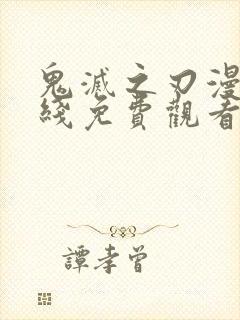 鬼滅之刃漫
綫免費觀看
譚孝曾